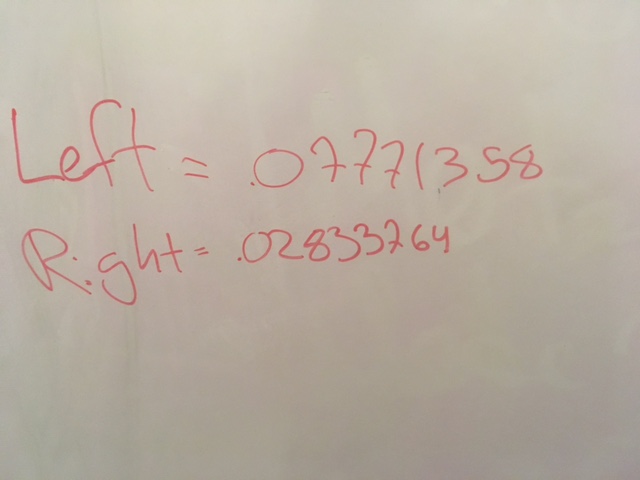 Left = .07771358
Right = .02833764